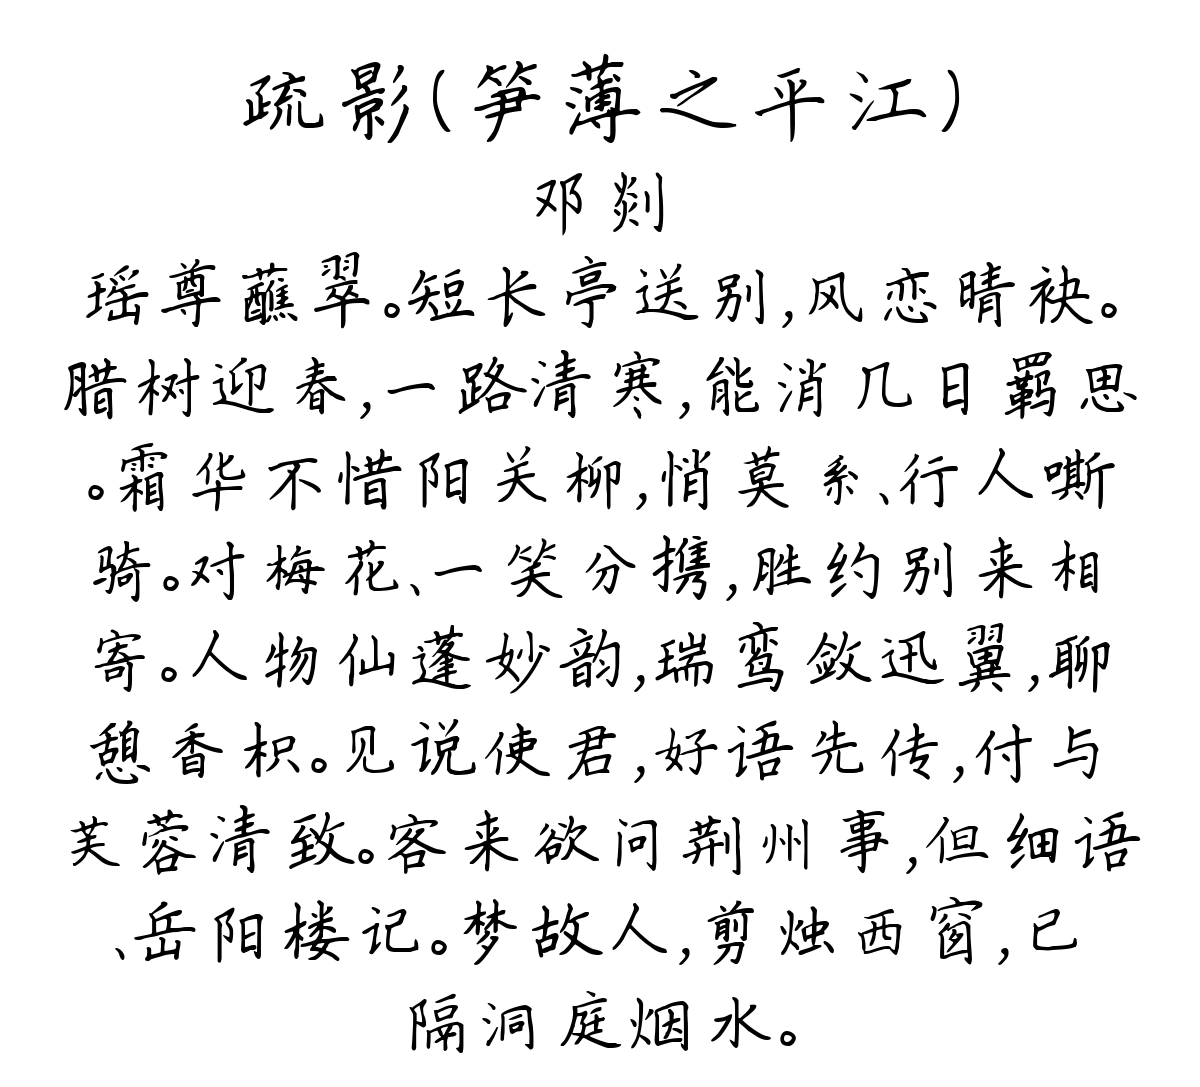 疏影(笋薄之平江)
邓剡
瑶尊蘸翠。短长亭送别,风恋晴袂。
腊树迎春,一路清寒,能消几日羁思
。霜华不惜阳关柳,悄莫系、行人嘶
骑。对梅花、一笑分携,胜约别来相
寄。人物仙蓬妙韵,瑞鸾敛迅翼,聊
憩香枳。见说使君,好语先传,付与
芙蓉清致。客来欲问荆州事,但细语
、岳阳楼记。梦故人,剪烛西窗,已
隔洞庭烟水。